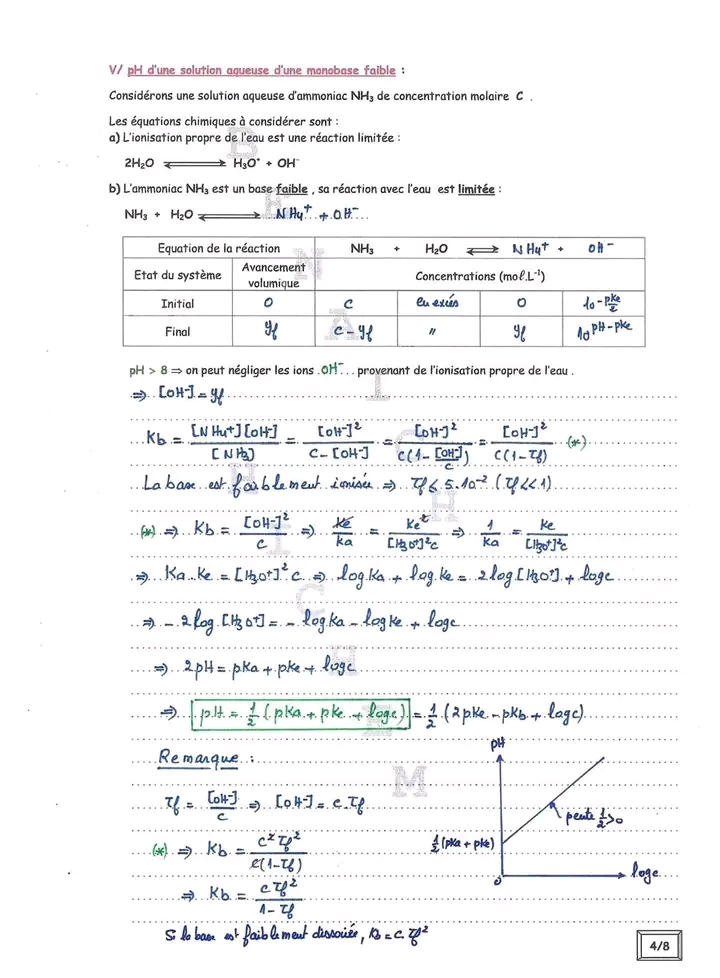 V/ pH d'une solution aqueuse d'une monobase faible :
Considérons une solution aqueuse d'ammoniac NH₃ de concentration molaire C .
Les équations chimiques à considérer sont :
a) L'ionisation propre de l'eau est une réaction limitée :
2H₂O ⇌ H₃O⁺ + OH⁻
b) L'ammoniac NH₃ est un base faible , sa réaction avec l'eau est limitée :
NH₃ + H₂O ⇌ NH₄⁺ + OH⁻
Equation de la réaction NH₃ + H₂O ⇌ NH₄⁺ + OH⁻
Etat du système Avancement volumique Concentrations (moℓ.L⁻¹)
Initial 0 C en excés 0 10^(-pKe/2)
Final yf C - yf " yf 10^(pH-pKe)
pH > 8 ⇒ on peut négliger les ions OH⁻ provenant de l'ionisation propre de l'eau .
⇒ [OH⁻] = yf
Kb = [NH₄⁺][OH⁻]/[NH₃] = [OH⁻]²/(C - [OH⁻]) = [OH⁻]²/(C(1 - [OH⁻]/C)) = [OH⁻]²/(C(1 - τf)) (*)
La base est faiblement ionisée ⇒ τf ≤ 5.10⁻² (τf << 1)
(*) ⇒ Kb = [OH⁻]²/C ⇒ Ke/Ka = Ke²/([H₃O⁺]²C) ⇒ 1/Ka = Ke/([H₃O⁺]²C)
⇒ Ka.Ke = [H₃O⁺]² C ⇒ log Ka + log Ke = 2log [H₃O⁺] + logC
⇒ - 2log [H₃O⁺] = - log Ka - log Ke + logC
⇒ 2pH = pKa + pKe + logC
⇒ pH = 1/2 (pKa + pKe + logC) = 1/2 (2pKe - pKb + logC)
Remarque :
τf = [OH⁻]/C ⇒ [OH⁻] = C.τf
(*) ⇒ Kb = C²τf²/(C(1-τf))
⇒ Kb = Cτf²/(1-τf)
Si la base est faiblement dissociée, Kb = C.τf²
pH
pente 1/2 > 0
1/2 (pKa + pKe)
0
logC
BENATTICHICHEM
4/8